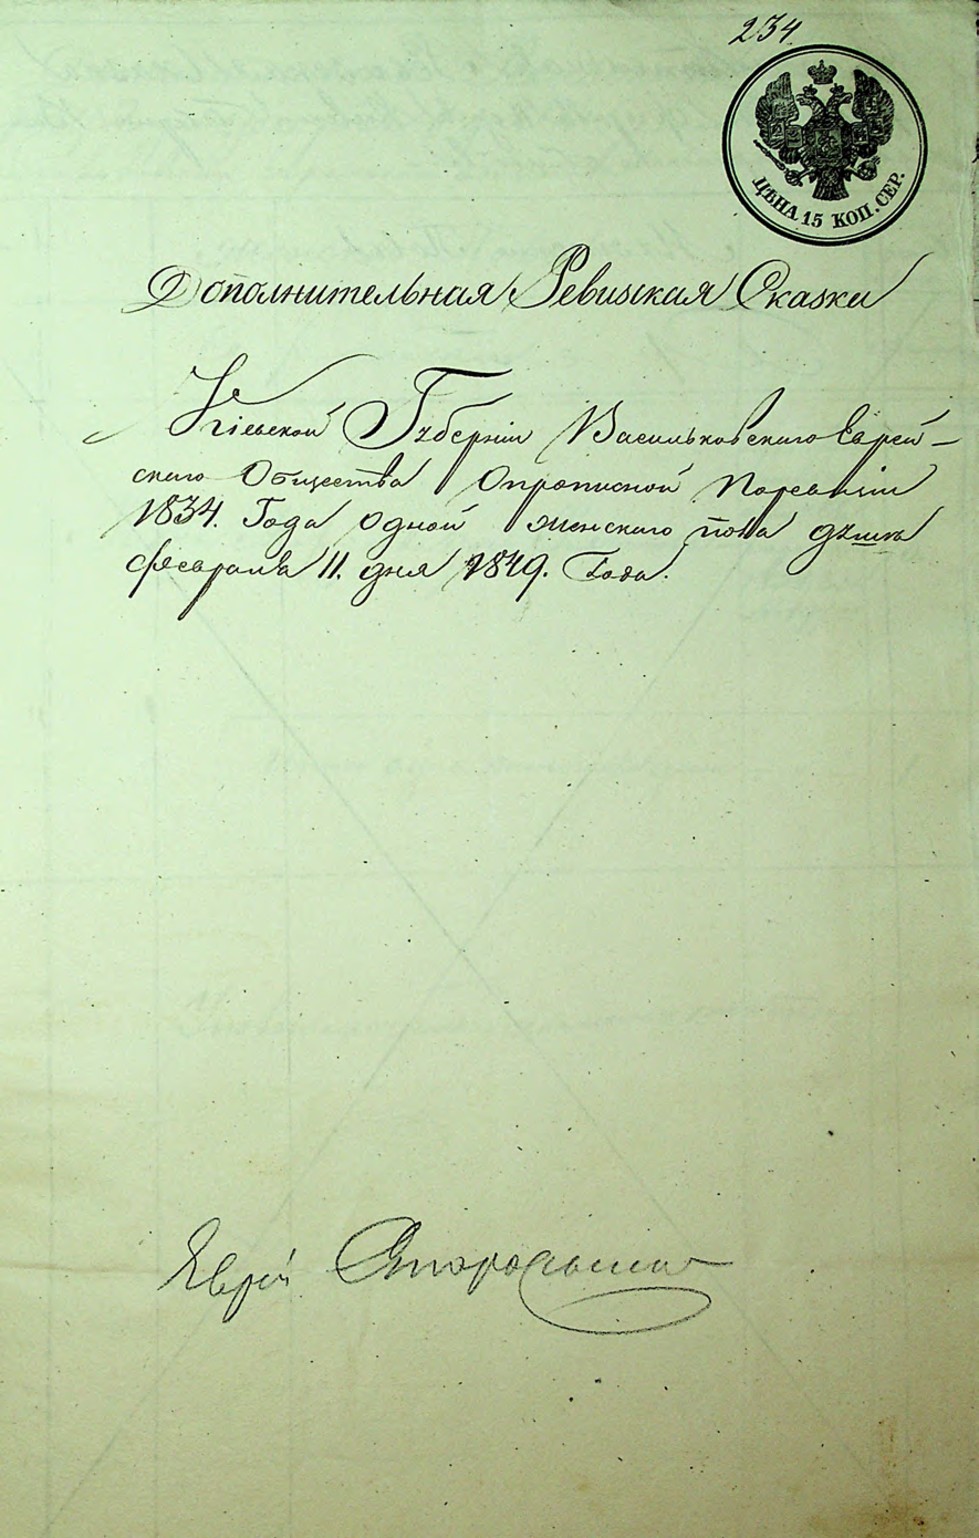 234
ЦѢНА 15 КОП. СЕР.
Дополнительная Ревизская Сказка
Кіевской Губерніи Васильковскаго Еврей-
скаго Общества Опрописной Поревизіи
1834. Года одной женскаго пола душѣ
февраля 11. дня 1849. Года.
Еврей